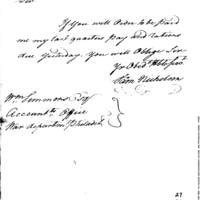 Sir
If you will Order to be paid
me my last quarters Pay and rations
due Yesterday. You will Oblige Sir
Yr Obedt Hble Servt
Sam Nicholson
Wm Simmons Esqr
Accountt Office
War department Philadela
27